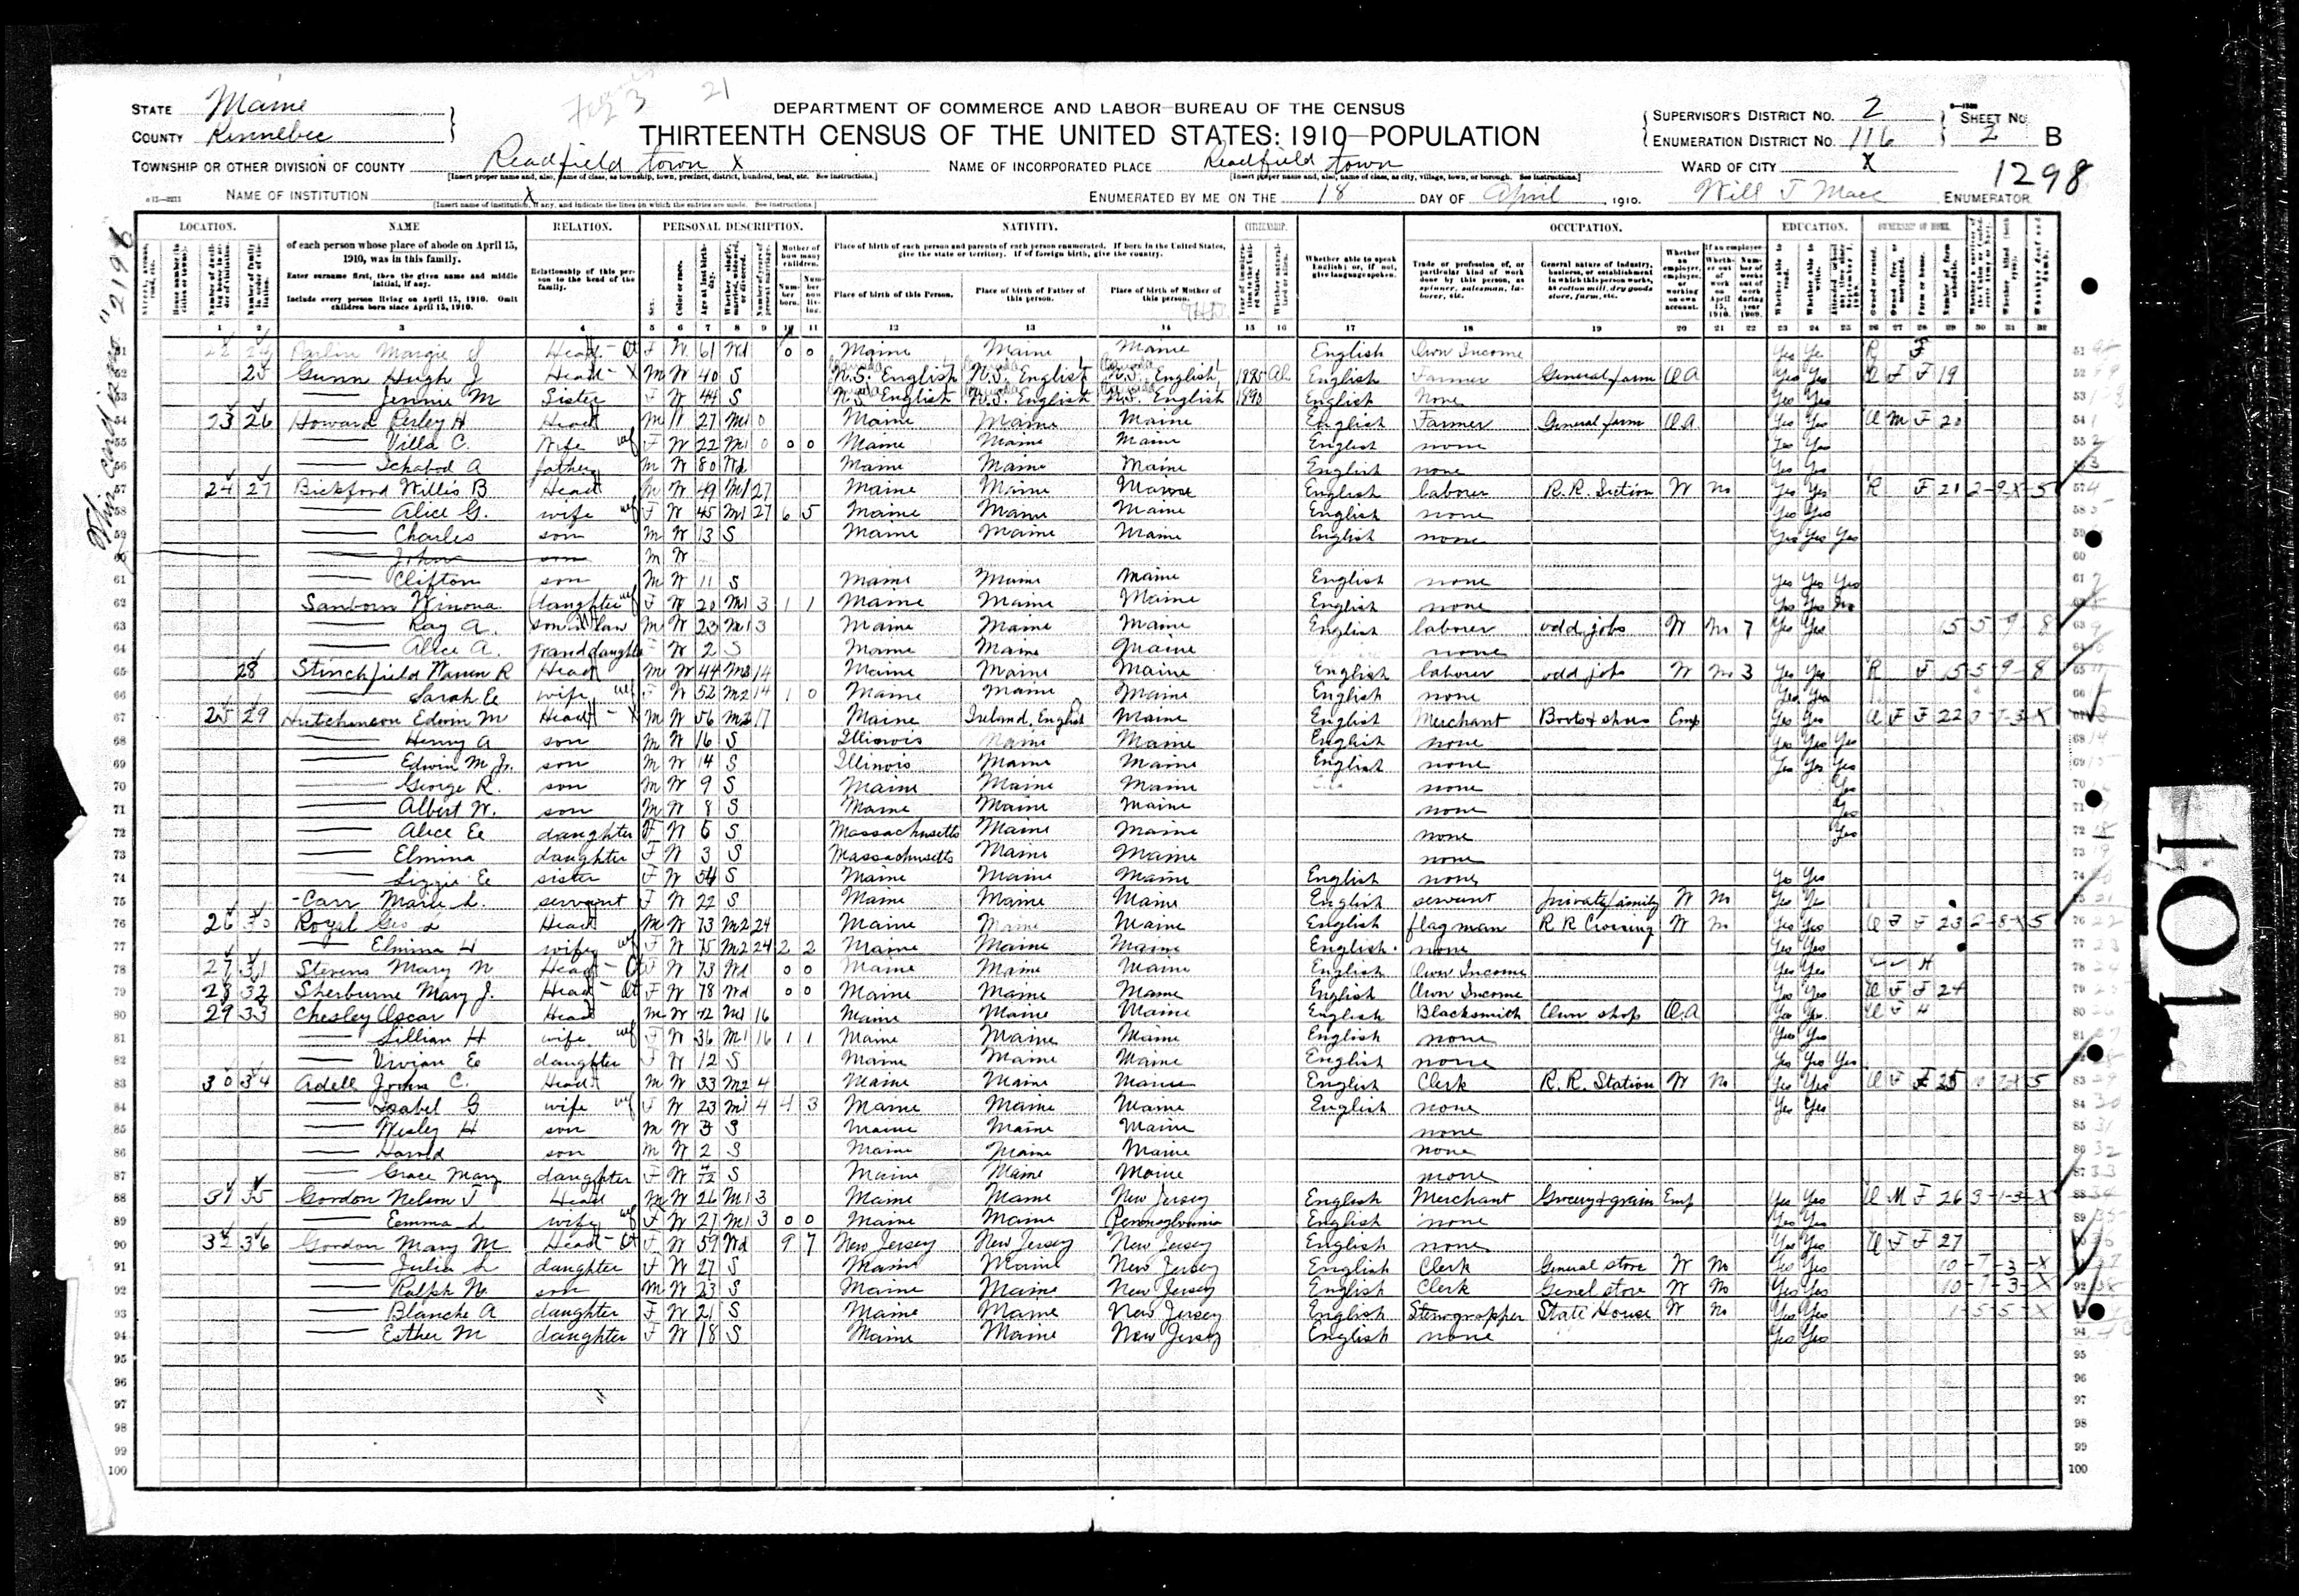 STATE Maine
COUNTY Kennebec
TOWNSHIP OR OTHER DIVISION OF COUNTY Readfield town X
NAME OF INSTITUTION X
DEPARTMENT OF COMMERCE AND LABOR—BUREAU OF THE CENSUS
THIRTEENTH CENSUS OF THE UNITED STATES: 1910—POPULATION
NAME OF INCORPORATED PLACE Readfield town
ENUMERATED BY ME ON THE 18 DAY OF April, 1910.
SUPERVISOR'S DISTRICT NO. 2
ENUMERATION DISTRICT NO. 116
SHEET NO. 2 B
WARD OF CITY X
1298
Will J ENUMERATOR
LOCATION. NAME RELATION. PERSONAL DESCRIPTION. NATIVITY. CITIZENSHIP. OCCUPATION. EDUCATION. OWNERSHIP OF HOME.
of each person whose place of abode on April 15, 1910, was in this family.
Enter surname first, then the given name and middle initial, if any.
Include every person living on April 15, 1910. Omit children born since April 15, 1910.
Relationship of this person to the head of the family.
Place of birth of each person and parents of each person enumerated. If born in the United States, give the state or territory. If of foreign birth, give the country.
Place of birth of this Person. Place of birth of Father of this person. Place of birth of Mother of this person.
Whether able to speak English; or, if not, give language spoken.
Trade or profession of, or particular kind of work done by this person, as spinner, salesman, laborer, etc.
General nature of industry, business, or establishment in which this person works, as cotton mill, dry goods store, farm, etc.
1 2 3 4 5 6 7 8 9 10 11 12 13 14 15 16 17 18 19 20 21 22 23 24 25 26 27 28 29 30 31 32
51 Margie Head F W 61 Wd 0 0 Maine Maine Maine English Own Income Yes Ye R F
52 25 Gunn Hugh J Head M W 40 S N.S. English N.S. English N.S. English 1895 Al English Farmer General farm OA Yes Yes O F F 19
53 Jennie M Sister F W 44 S N.S. English N.S. English N.S. English 1890 English None Yes Yes
54 23 26 Howard Perley H Head M W 27 M1 0 Maine Maine Maine English Farmer General farm OA Yes Yes O M F 20
55 Villa C. Wife F W 22 M1 0 0 0 Maine Maine Maine English none Yes Yes
56 Ichabod A father M W 80 Wd Maine Maine Maine English none Yes Yes
57 24 27 Bickford Willis B Head M W 49 M1 27 Maine Maine Maine English laborer R.R. Section W No Yes Yes R F 21 2-9-X-5
58 Alice G. wife F W 45 M1 27 6 5 Maine Maine Maine English none Yes Yes
59 Charles son M W 13 S Maine Maine Maine English none Yes Yes Yes
60 John son M W
61 Clifton son M W 11 S Maine Maine Maine English none Yes Yes Yes
62 Sanborn Winona daughter F W 20 M1 3 1 1 Maine Maine Maine English none Yes Yes No
63 Ray A. son in law M W 23 M1 3 Maine Maine Maine English laborer odd jobs W No 7 Yes Yes 5 5 9 8
64 Alice A. granddaughter F W 2 S Maine Maine Maine none
65 28 Stinchfield Warren R Head M W 44 M2 14 Maine Maine Maine English laborer odd jobs W No 3 Yes Yes R F 5 5 9 8
66 Sarah E wife F W 52 M2 14 1 0 Maine Maine Maine English none Yes Yes
67 25 29 Hutchinson Edwin M Head M W 56 M2 17 Maine Ireland, English Maine English Merchant Boots & shoes Emp Yes Yes O F F 22
68 Henry A son M W 16 S Illinois Maine Maine English none Yes Yes Yes
69 Edwin M Jr. son M W 14 S Illinois Maine Maine English none Yes Yes Yes
70 George R. son M W 9 S Maine Maine Maine none Yes
71 Albert W. son M W 8 S Maine Maine Maine none Yes
72 Alice E daughter F W 6 S Massachusetts Maine Maine none Yes
73 Elmina daughter F W 3 S Massachusetts Maine Maine none
74 Lizzie E sister F W 54 S Maine Maine Maine English none Yes Yes
75 Carr Marie L. servant F W 22 S Maine Maine Maine English servant private family W No Yes Yes
76 26 30 Royal Geo L Head M W 73 M2 24 Maine Maine Maine English flagman R R Crossing W No Yes Yes O F F 23 2-8-X-5
77 Elmina H wife F W 75 M2 24 2 2 Maine Maine Maine English none Yes Yes
78 27 31 Stevens Mary N Head F W 73 Wd 0 0 Maine Maine Maine English Own Income Yes Yes H
79 28 32 Sherburne Mary J. Head F W 78 Wd 0 0 Maine Maine Maine English Own Income Yes Yes O F F 24
80 29 33 Chesley Oscar Head M W 42 M1 16 Maine Maine Maine English Blacksmith Own shop O.A Yes Yes O F H
81 Lillian H wife F W 36 M1 16 1 1 Maine Maine Maine English none Yes Yes
82 Vivian E daughter F W 12 S Maine Maine Maine English none Yes Yes Yes
83 30 34 Adell John C. Head M W 33 M2 4 Maine Maine Maine English Clerk R.R. Station W No Yes Yes O F F 25
84 Isabel G wife F W 23 M1 4 4 3 Maine Maine Maine English none Yes Yes
85 Wesley H son M W 3 S Maine Maine Maine none
86 Harold son M W 2 S Maine Maine Maine none
87 Grace Mary daughter F W S Maine Maine Maine none
88 31 35 Gordon Nelson J Head M W 26 M1 3 Maine Maine New Jersey English Merchant Grocery & grain Emp Yes Yes O M F 26 3-1-3-X
89 Emma L wife F W 27 M1 3 0 0 Maine Maine Pennsylvania English none Yes Yes
90 32 36 Gordon Mary M Head F W 59 Wd 9 7 New Jersey New Jersey New Jersey English none Yes Yes O F F 27
91 Julia L daughter F W 27 S Maine Maine New Jersey English Clerk General store W No Yes Yes 10-7-3-X
92 Ralph W. son M W 23 S Maine Maine New Jersey English Clerk Genel store W No Yes Yes 10-7-3-X
93 Blanche A daughter F W 21 S Maine Maine New Jersey English Stenographer State House W No Yes Yes 1-5-5-X
94 Esther M daughter F W 18 S Maine Maine New Jersey English none Yes Yes
95
96
97
98
99
100
101